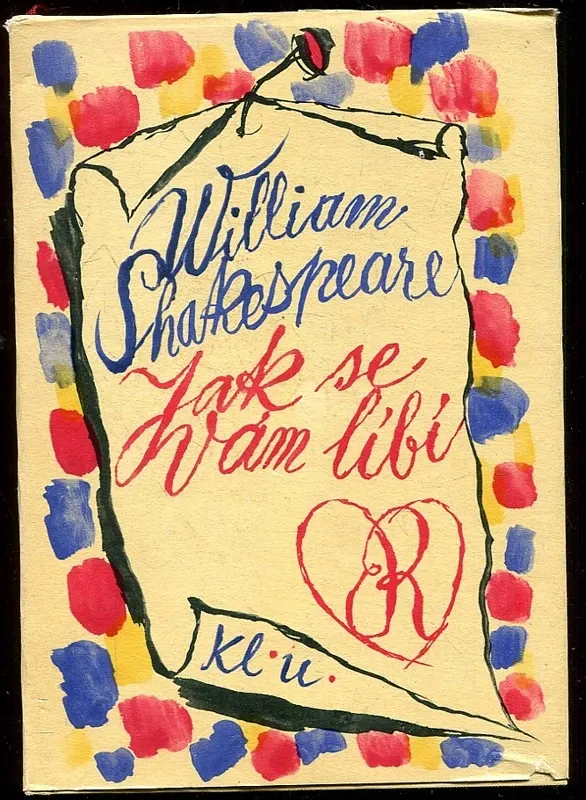 William
Shakespeare
Jak se
Vám líbí
R
kl.u.